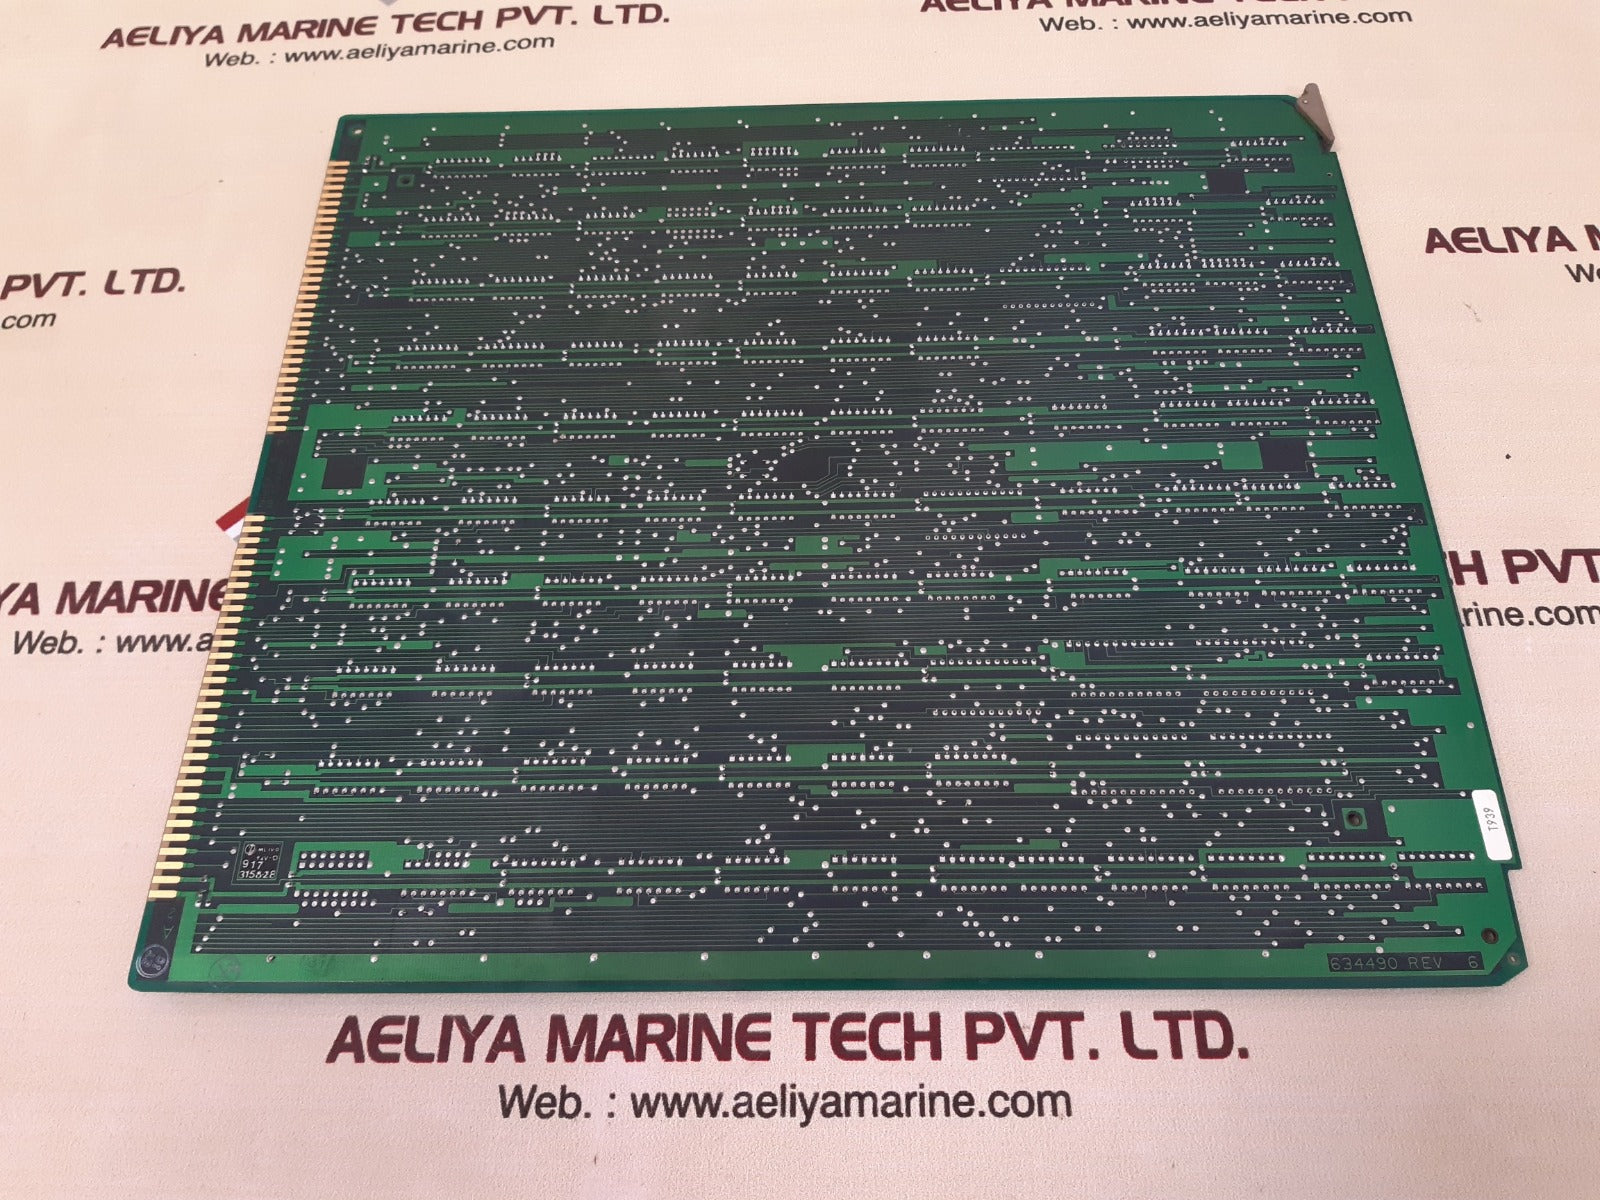 AELIYA MARINE TECH PVT. LTD.
Web. : www.aeliyamarine.com
AELIYA MARINE TECH
Web. : www.aeliyamarine.com
PVT. LTD.
.com
AELIYA
YA MARINE
Web. : www.a
H PVT
rine.com
T939
917
315828
634490 REV 6
AELIYA MARINE TECH PVT. LTD.
Web. : www.aeliyamarine.com